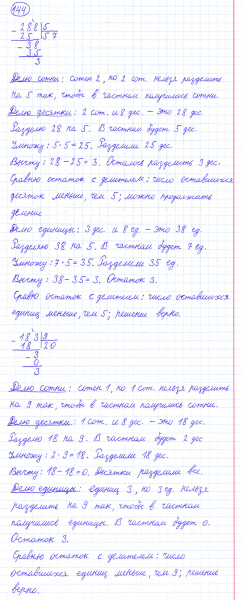 144
288 | 5
25 | 57
38
35
3
Делю сотни: сотен 2, но 2 сот. нельзя разделить
на 5 так, чтобы в частном получились сотни.
Делю десятки: 2 сот. и 8 дес. – это 28 дес.
Разделю 28 на 5. В частном будет 5 дес.
Умножу: 5·5=25. Разделили 25 дес.
Вычту: 28-25=3. Осталось разделить 3 дес.
Сравню остаток с делителем: число оставшихся
десяток меньше, чем 5; можно продолжать
деление
Делю единицы: 3 дес. и 8 ед. – это 38 ед.
Разделяю 38 на 5. В частном будет 7 ед.
Умножу: 7·5=35. Разделили 35 ед.
Вычту: 38-35=3. Остаток 3.
Сравню остаток с делителем: число оставшихся
единиц меньше, чем 5; решение верно.
183 | 9
18 | 20
3
0
3
Делю сотни: сотен 1, но 1 сот. нельзя разделить
на 9 так, чтобы в частном получились сотни.
Делю десятки: 1 сот. и 8 дес. – это 18 дес.
Разделю 18 на 9. В частном будет 2 дес
Умножу: 2·9=18. Разделили 18 дес.
Вычту: 18-18=0. Десятки разделили все.
Делю единицы: единиц 3, но 3 ед. нельзя
разделить на 9 так, чтобы в частном
получились единицы. В частном будет 0.
Остаток 3.
Сравню остаток с делителем: число
оставшихся единиц меньше, чем 9; решение
верно.